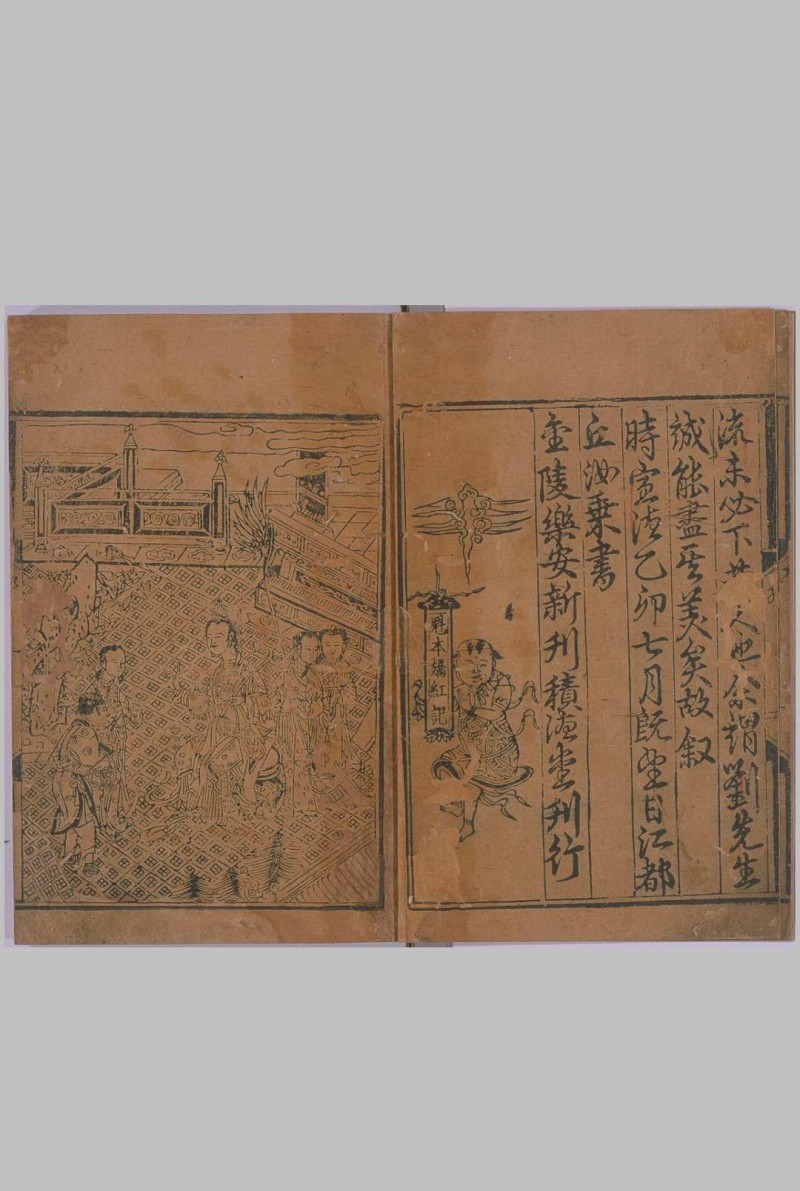 流未必下世之也 余謂劉先生
誠能盡其美矣故叙
時宣德乙卯七月既望日江都
丘汝乗書
金陵樂安新刋積德堂刋行
魁本嬌紅記